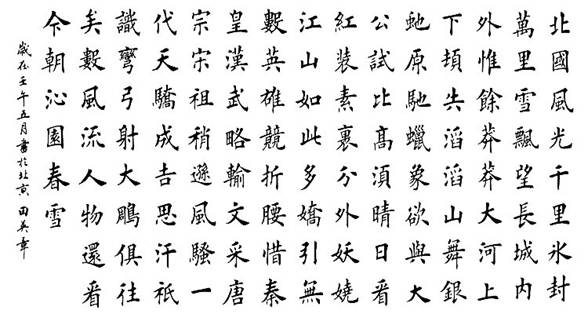 北國風光千里氷封
萬里雪飄望長城内
外惟餘莽莽大河上
下頓失滔滔山舞銀
虵原馳蠟象欲與大
公試比髙須晴日看
紅裝素裹分外妖嬈
江山如此多嬌引無
數英雄競折腰惜秦
皇漢武略輸文采唐
宗宋祖稍遜風騷一
代天驕成吉思汗衹
識彎弓射大鵰俱往
矣數風流人物還看
今朝沁園春雪
歲在壬午五月書於北京 田英章